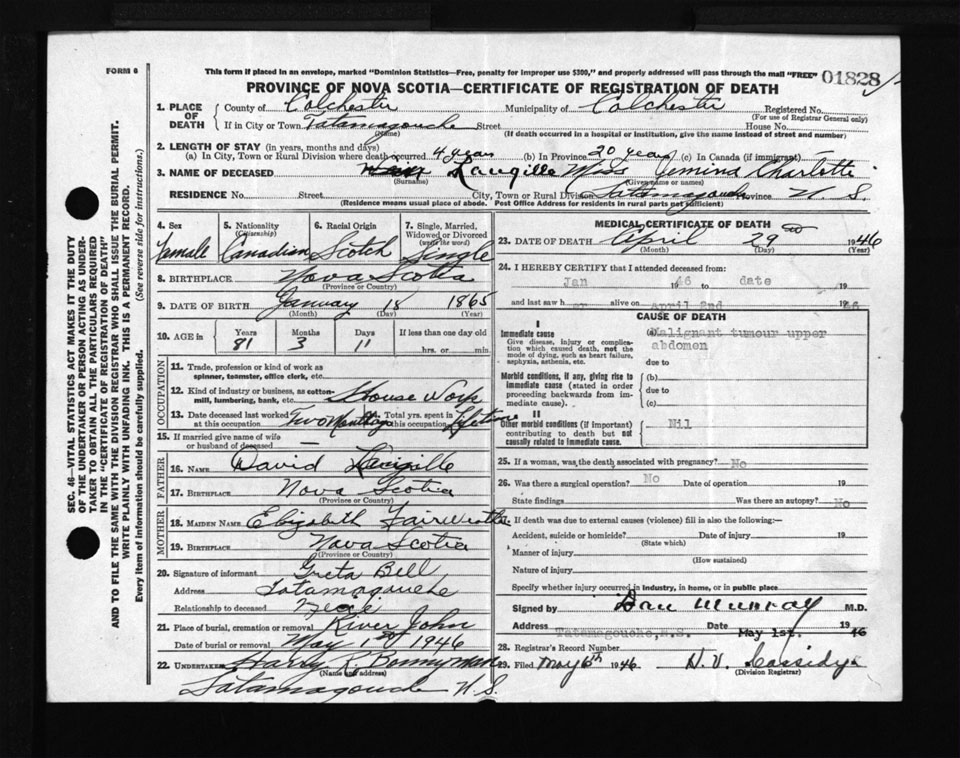 FORM 6
This form if placed in an envelope, marked "Dominion Statistics—Free, penalty for improper use $300," and properly addressed will pass through the mail "FREE"
01828
PROVINCE OF NOVA SCOTIA—CERTIFICATE OF REGISTRATION OF DEATH
1. PLACE OF DEATH County of Colchester Municipality of Colchester Registered No.
(For use of Registrar General only)
If in City or Town Tatamagouche Street House No.
(Name) (If death occurred in a hospital or institution, give the name instead of street and number)
2. LENGTH OF STAY (in years, months and days)
(a) In City, Town or Rural Division where death occurred 4 years (b) In Province 20 years (c) In Canada (if immigrant)
3. NAME OF DECEASED Langille Miss Jemima Charlotte
(Surname) (Given name or names)
RESIDENCE No. Street City, Town or Rural Division Tatamagouche Province N. S.
(Residence means usual place of abode. Post Office Address for residents in rural parts not sufficient)
SEC. 46—VITAL STATISTICS ACT MAKES IT THE DUTY
OF THE UNDERTAKER OR PERSON ACTING AS UNDER-
TAKER TO OBTAIN ALL THE PARTICULARS REQUIRED
IN THE "CERTIFICATE OF REGISTRATION OF DEATH"
AND TO FILE THE SAME WITH THE DIVISION REGISTRAR WHO SHALL ISSUE THE BURIAL PERMIT.
WRITE PLAINLY WITH UNFADING INK. THIS IS A PERMANENT RECORD.
Every item of information should be carefully supplied. (See reverse side for instructions.)
4. Sex 5. Nationality (Citizenship) 6. Racial Origin 7. Single, Married, Widowed or Divorced (write the word)
Female Canadian Scotch Single
8. BIRTHPLACE Nova Scotia
(Province or Country)
9. DATE OF BIRTH January 18 1865
(Month) (Day) (Year)
10. AGE in Years Months Days If less than one day old
81 3 11 hrs. or min.
OCCUPATION
11. Trade, profession or kind of work as
spinner, teamster, office clerk, etc.
12. Kind of industry or business, as cotton-
mill, lumbering, bank, etc. House Work
13. Date deceased last worked at this occupation Two Months ago 14. Total yrs. spent in this occupation Lifetime
15. If married give name of wife
or husband of deceased —
FATHER
16. NAME David Langille
17. BIRTHPLACE Nova Scotia
(Province or Country)
MOTHER
18. MAIDEN NAME Elizabeth Fairweather
19. BIRTHPLACE Nova Scotia
(Province or Country)
20. Signature of informant Greta Bell
Address Tatamagouche
Relationship to deceased Neice
21. Place of burial, cremation or removal River John
Date of burial or removal May 1st 1946
22. UNDERTAKER Harry R. Bonnyman
(Name and address)
Tatamagouche N.S.
MEDICAL CERTIFICATE OF DEATH
23. DATE OF DEATH April 29 1946
(Month) (Day) (Year)
24. I HEREBY CERTIFY that I attended deceased from:
Jan 1946 to date 19
and last saw her alive on April 2nd 1946
CAUSE OF DEATH
I
Immediate cause
Give disease, injury or complica-
tion which caused death, not the
mode of dying, such as heart failure,
asphyxia, asthenia, etc.
(a) Malignant tumour upper
abdomen
due to
Morbid conditions, if any, giving rise to
immediate cause (stated in order
proceeding backwards from im-
mediate cause).
(b)
due to
(c)
II
Other morbid conditions (if important)
contributing to death but not
causally related to immediate cause.
Nil
25. If a woman, was the death associated with pregnancy? No
26. Was there a surgical operation? No Date of operation 19
State findings Was there an autopsy? No
27. If death was due to external causes (violence) fill in also the following:—
Accident, suicide or homicide? Date of injury 19
(State which)
Manner of injury
(How sustained)
Nature of injury
Specify whether injury occurred in industry, in home, or in public place
Signed by Dan Murray M.D.
Address Tatamagouche, N.S. Date May 1st. 1946
28. Registrar's Record Number
29. Filed May 6th 1946 H. V. Cassidy
(Division Registrar)